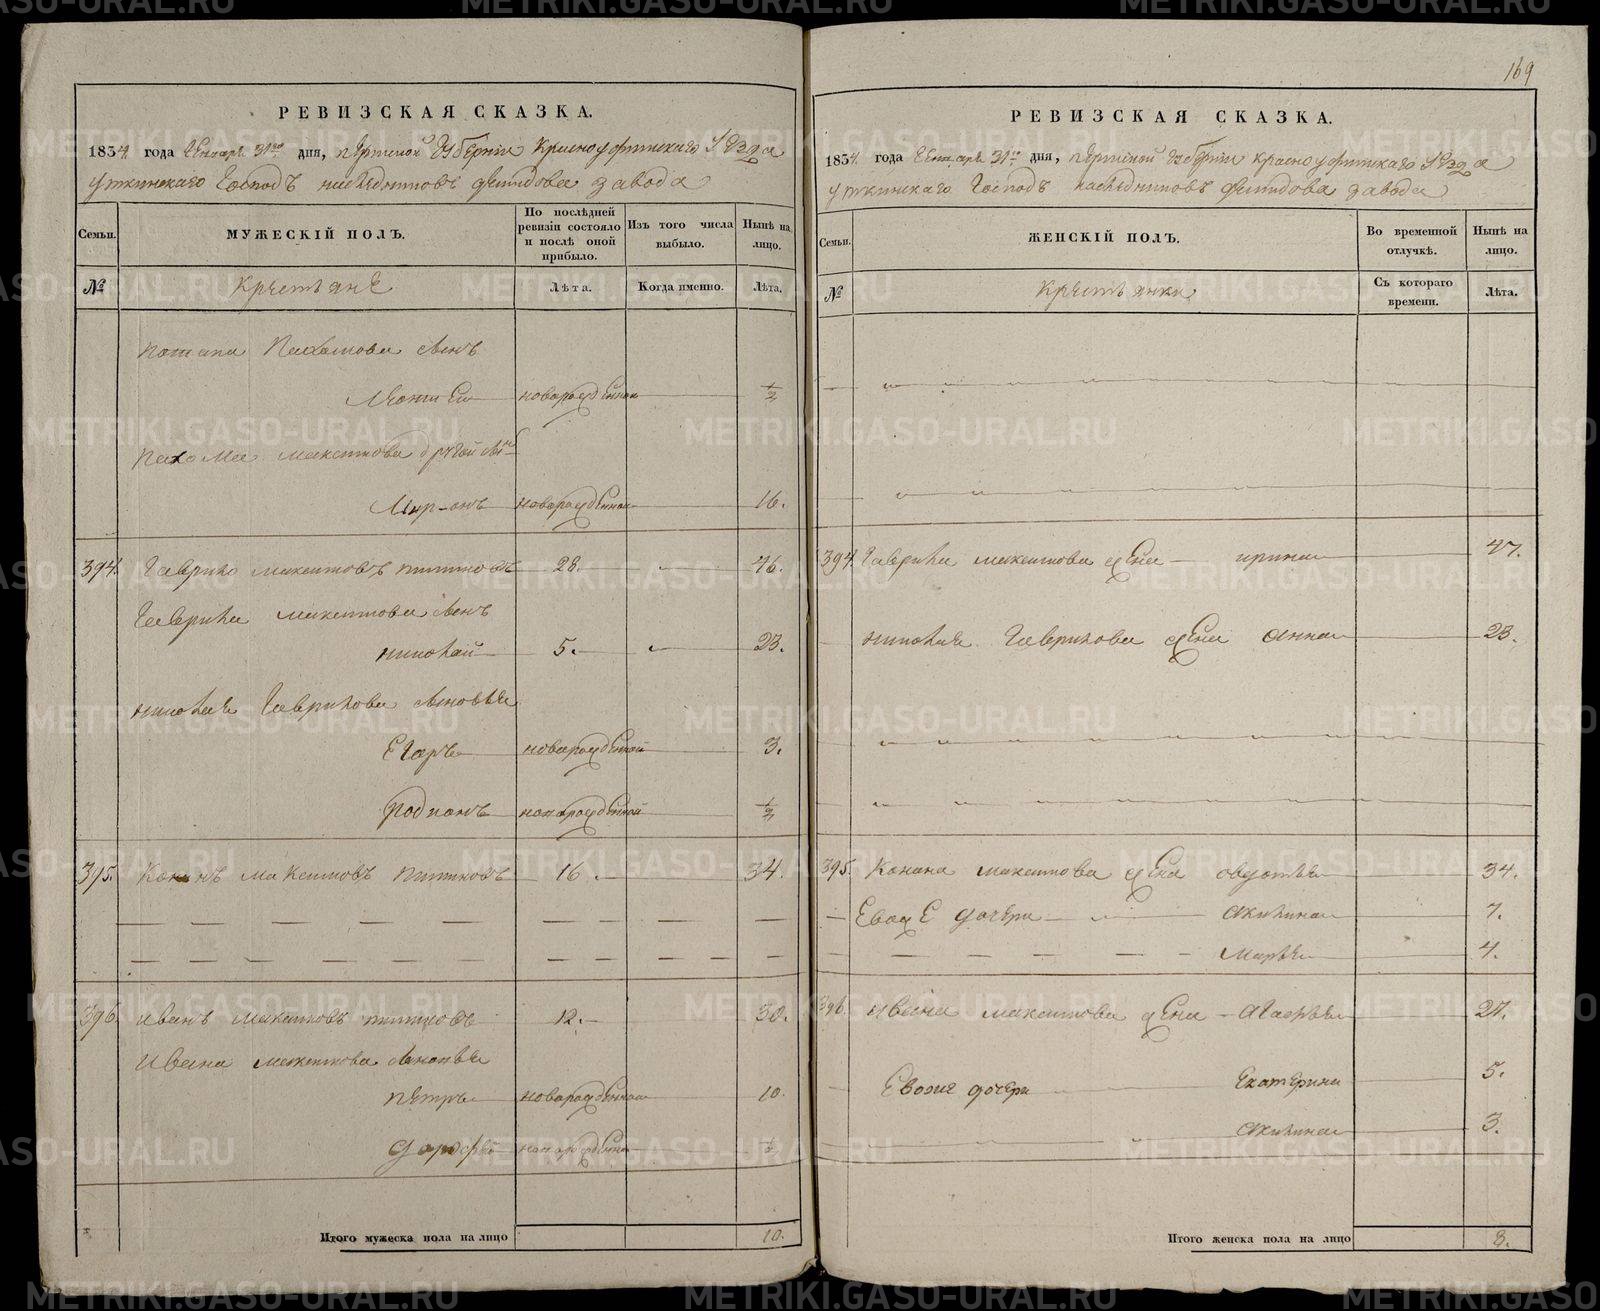 169
РЕВИЗСКАЯ СКАЗКА.
1834. года Генваря 31го дня, пермской губернии Красноуфимскаго уезда
уткинскаго Господъ наследниковъ демидова завода
Семьи.
МУЖЕСКІЙ ПОЛЪ.
По послѣдней ревизіи состояло и послѣ оной прибыло.
Изъ того числа выбыло.
Нынѣ на лицо.
№
Крестьяне
Лѣта.
Когда именно.
Лѣта.
потапа Пахомова сынъ
новорожденной ½
Пахома максимова другой сынъ
Миронъ новорожденной 16.
394. Гаврило максимовъ 28. 46.
Гаврила максимова сынъ
николай 5. 23.
николая Гаврилова сыновья
Егоръ новорожденной 3.
Родионъ новорожденной ½
395. Кононъ максимовъ 16 34.
396. иванъ максимовъ 12. 30.
ивана максимова сыновья
петръ новорожденной 10.
дорофей новорожденной ½
Итого мужеска пола на лицо 10.
РЕВИЗСКАЯ СКАЗКА.
1834. года Генваря 31го дня, пермской губернии красноуфимскаго уезда
уткинскаго Господъ наследниковъ демидова завода
Семьи.
ЖЕНСКІЙ ПОЛЪ.
Во временной отлучкѣ.
Нынѣ на лицо.
№
Крестьянки
Съ котораго времени.
Лѣта.
394. Гаврила максимова жена ирина 47.
николая Гаврилова жена анна 23.
395. Конона максимова жена овдотья 34.
Евоже дочери акилина 7.
марья 4.
396. ивана максимова жена 27.
Евоже дочери Екатерина 5.
акилина 3.
Итого женска пола на лицо 8.
METRIKI.GASO-URAL.RU